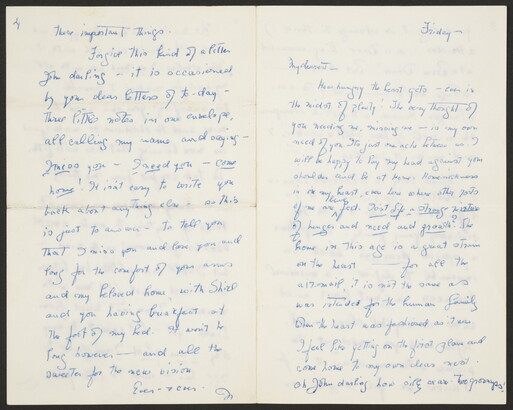 4
these important things.
Forgive this kind of a letter
John darling - it is occasioned
by your dear letters of to-day -
three little notes in one envelope,
all calling my name and saying -
I need you - I need you - come
home! It isn't easy to write you
back about anything else - so this
is just to answer - to tell you
that I miss you and love you and
long for the comfort of your arms
and my beloved home, with
and you having breakfast at
the foot of my bed. It won't be
long however - and all the
sweeter for the new vision
Ever - ever -
Friday -
My dearest -
How hungry the heart gets - even in
the midst of plenty! The very thought of
you needing me, missing me - is my own
need of you. It's just an ache between us. I
will be happy to lay my head against your
shoulder and be at home. Homesickness
is in my heart, even here where other parts
of me are fed. Isn't life - strange mixture
of hunger and need and growth? The
home in this age is a great strain
on the heart - for all the
airmail, it is not the same as
was intended for the human family
when the heart was fashioned as it was.
I feel like getting on the first plane and
come home to my own dear nest.
Oh, John darling how silly